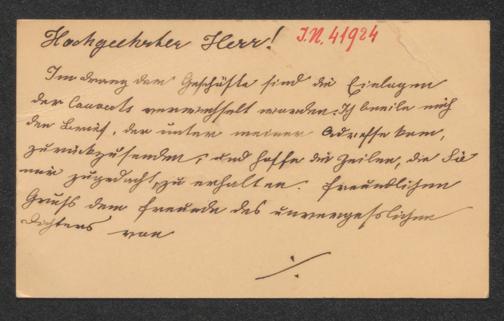 Hochgeehrter Herr! I.N. 41924
Im drang der Geschäfte sind die Einlagen
der Couverts verwechselt worden. Ich beeile mich
den Brief, der unter meiner Adresse kam,
zurückzusenden, und hoffe die Zeilen, die Sie
mir zugedacht, zu erhalten. Freundlichen
Gruß dem Freunde des unvergesslichen
Dichters von